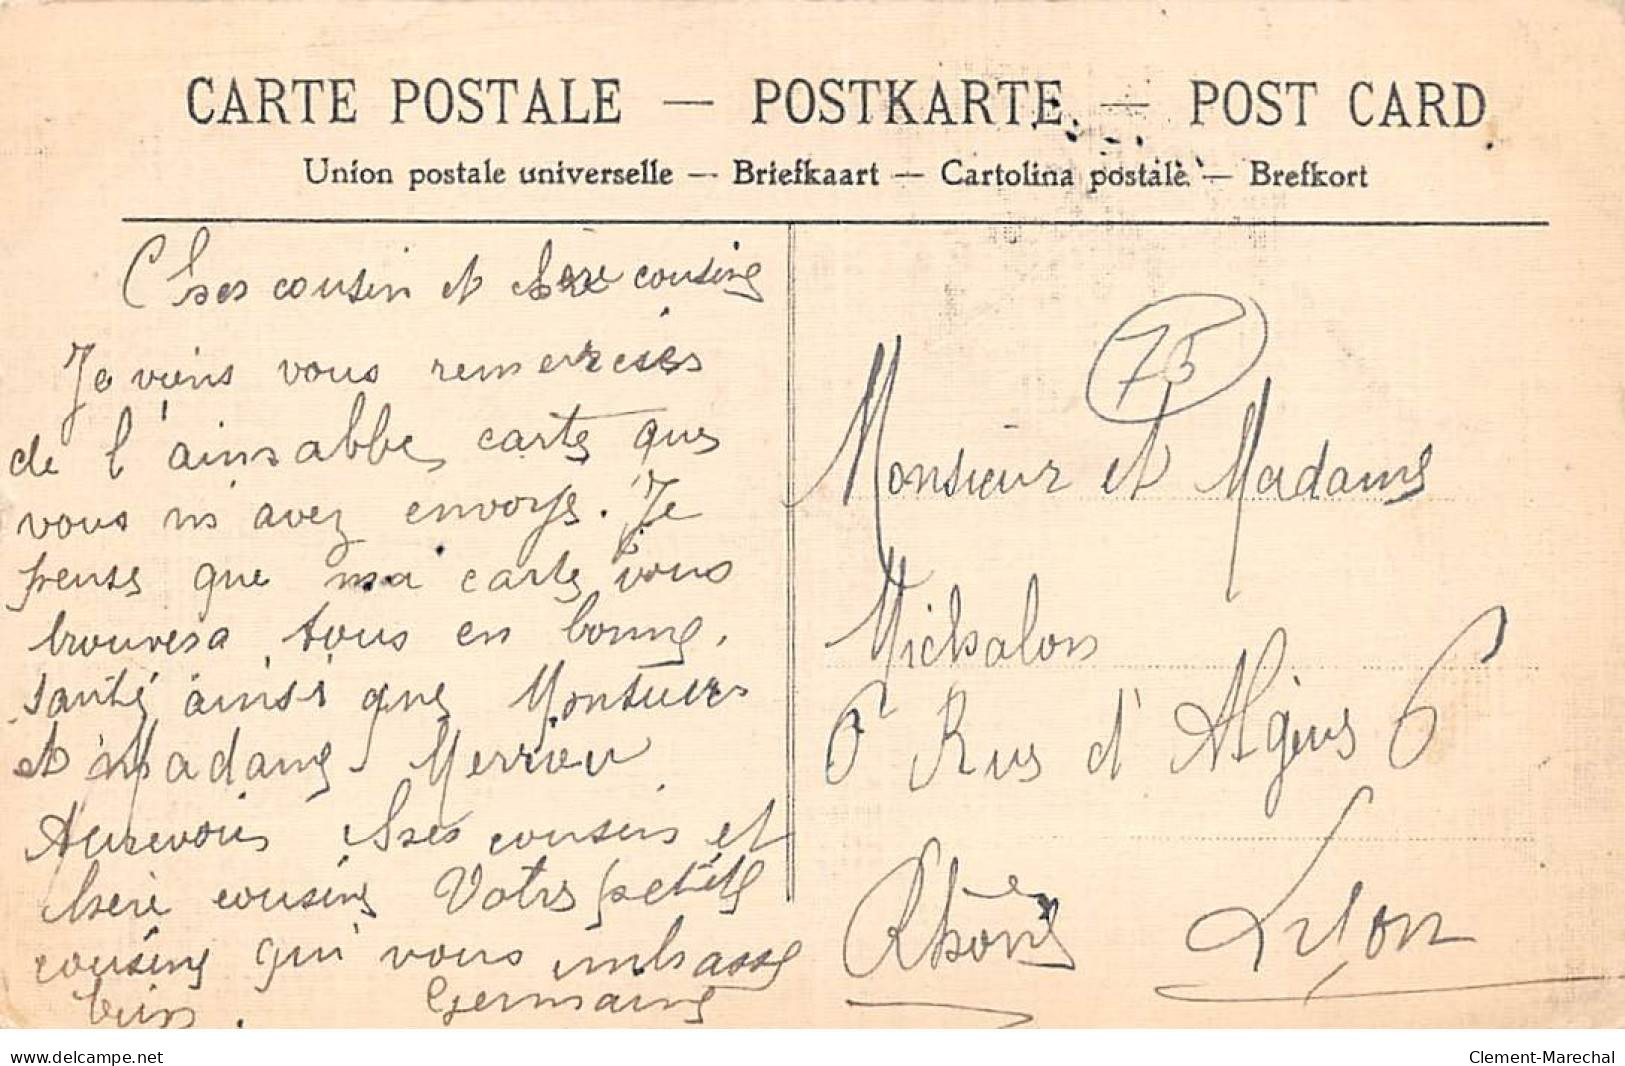 CARTE POSTALE — POSTKARTE — POST CARD
Union postale universelle — Briefkaart — Cartolina postale — Brefkort
Cher cousin et chère cousine
Je viens vous remercier
de l'aimable carte que
vous m'avez envoye. Je
pense que ma carte vous
trouvera tous en bonne
santé ainsi que Monsieur
et Madame Merrieu
Aurevoir cher cousin et
chère cousine Votre petite
cousine qui vous embrasse
bien. Germaine
75
Monsieur et Madame
Michalon
6 Rue d'Alger 6
Rhône Lyon
www.delcampe.net
Clement-Marechal